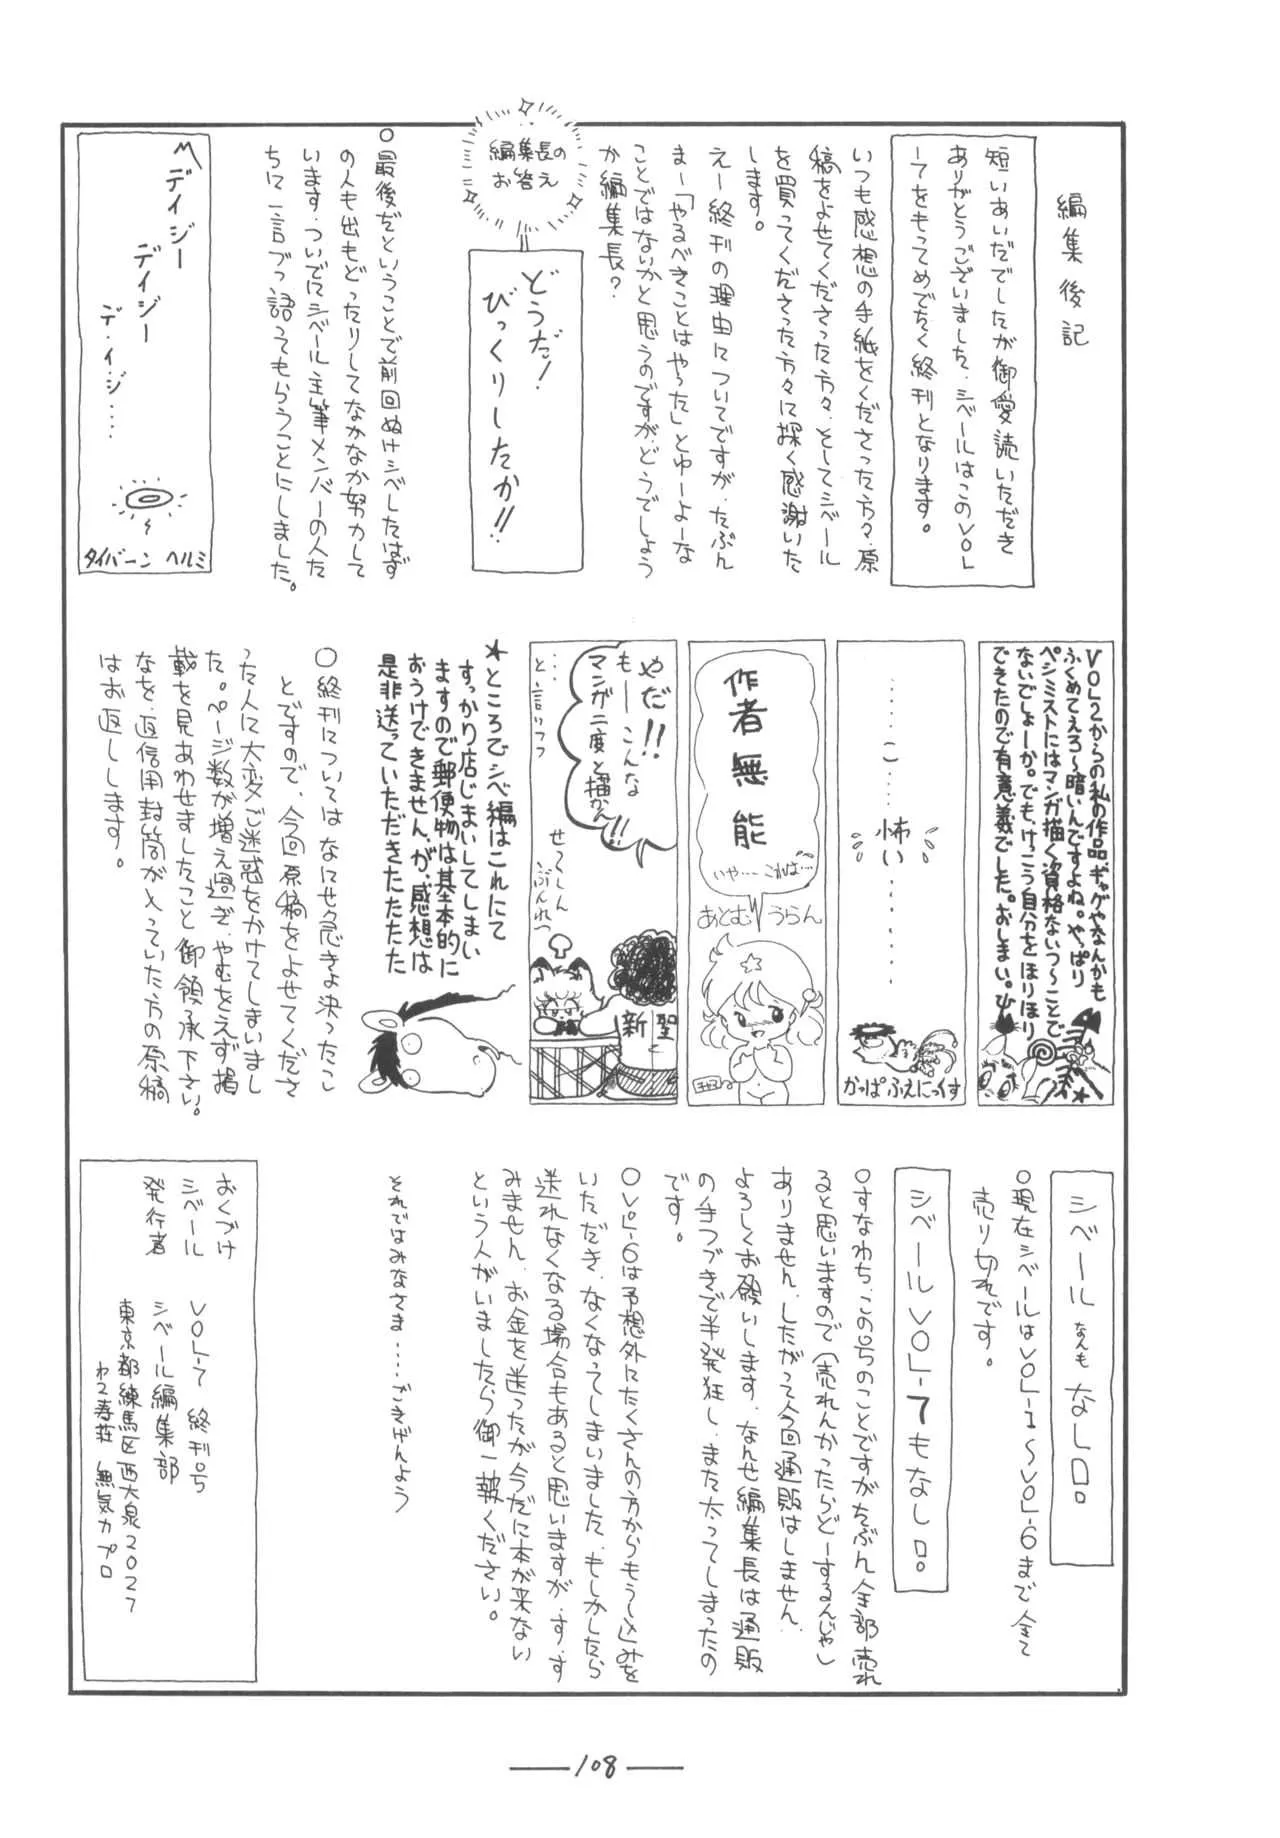 編集後記
短いあいだでしたが御愛読いただき
ありがとうございました。シベールはこのVOL
ーてをもってめでたく終刊となります。
いつも感想の手紙をくださった方々、原
稿をよせてくださった方々、そしてシベール
を買ってくださった方々に深く感謝いた
します。
えー終刊の理由についてですが、たぶん
まー「やるべきことはやった」とゆーよーな
ことではないかと思うのですが、どうでしょう
か編集長？
編集長の
お答え
どうだ！
びっくりしたか!!
○最後だということで前回ぬけシベしたはず
の人も出もどったりしてなかなか努力して
います。ついでにシベール主筆メンバーの人た
ちに一言づつ語ってもらうことにしました。
デイジー
デイジー
デ・イ・ジ・・・・
タイバーン ヘルミ
VOL2からの私の作品、ギャグやなんかも
ふくめてえろ〜暗いんですよね。やっぱり
ペシミストにはマンガ描く資格ないつ〜ことで
ないでしょーか。でも、けっこう自分をほりほり
できたので有意義でした。おしまい。
・・・・・・こ・・・・・・
怖い・・・・・・・・・
かっぱ ふぇにっくす
作者無能
いや・・・・これは・・・・
あとむ うらん
やだ!!
もーーこんな
マンガ二度と描かん!!
・・・と言いつつ
せーしん
ぶんれつ
新聖
★ところでシベ編はこれにて
すっかり店じまいしてしまい
ますので郵便物は基本的に
おうけできませんが、感想は
是非送っていただきたたたた
○終刊については なにせ急きょ決ったこ
とですので、今回原稿をよせてくださ
った人に大変ご迷惑をかけてしまいまし
た。ページ数が増え過ぎ、やむをえず掲
載を見あわせましたこと御領承下さい。
なを、返信用封筒が入っていた方の原稿
はお返しします。
シベールなんもなし□。
○現在シベールはVOL-1〜VOL-6まで全て
売り切れです。
シベールVOL-7もなし□。
○すなわち、この号のことですがたぶん全部売れ
ると思いますので（売れんかったらどーするんじゃ）
ありません。したがって今回通販はしません。
よろしくお願いします。なんせ編集長は通販
の手つづきで半発狂し、また太ってしまったの
です。
○VOL-6は予想外にたくさんの方からもうし込みを
いただき、なくなってしまいました。もしかしたら
送れなくなる場合もあると思いますが、す、す
みません。お金を送ったが今だに本が来ない
という人がいましたら御一報ください。
それではみなさま・・・・ごきげんよう
おくづけ
シベール VOL-7 終刊号
発行者 シベール編集部
東京都練馬区西大泉2027
わこ寿荘 無気力プロ
108